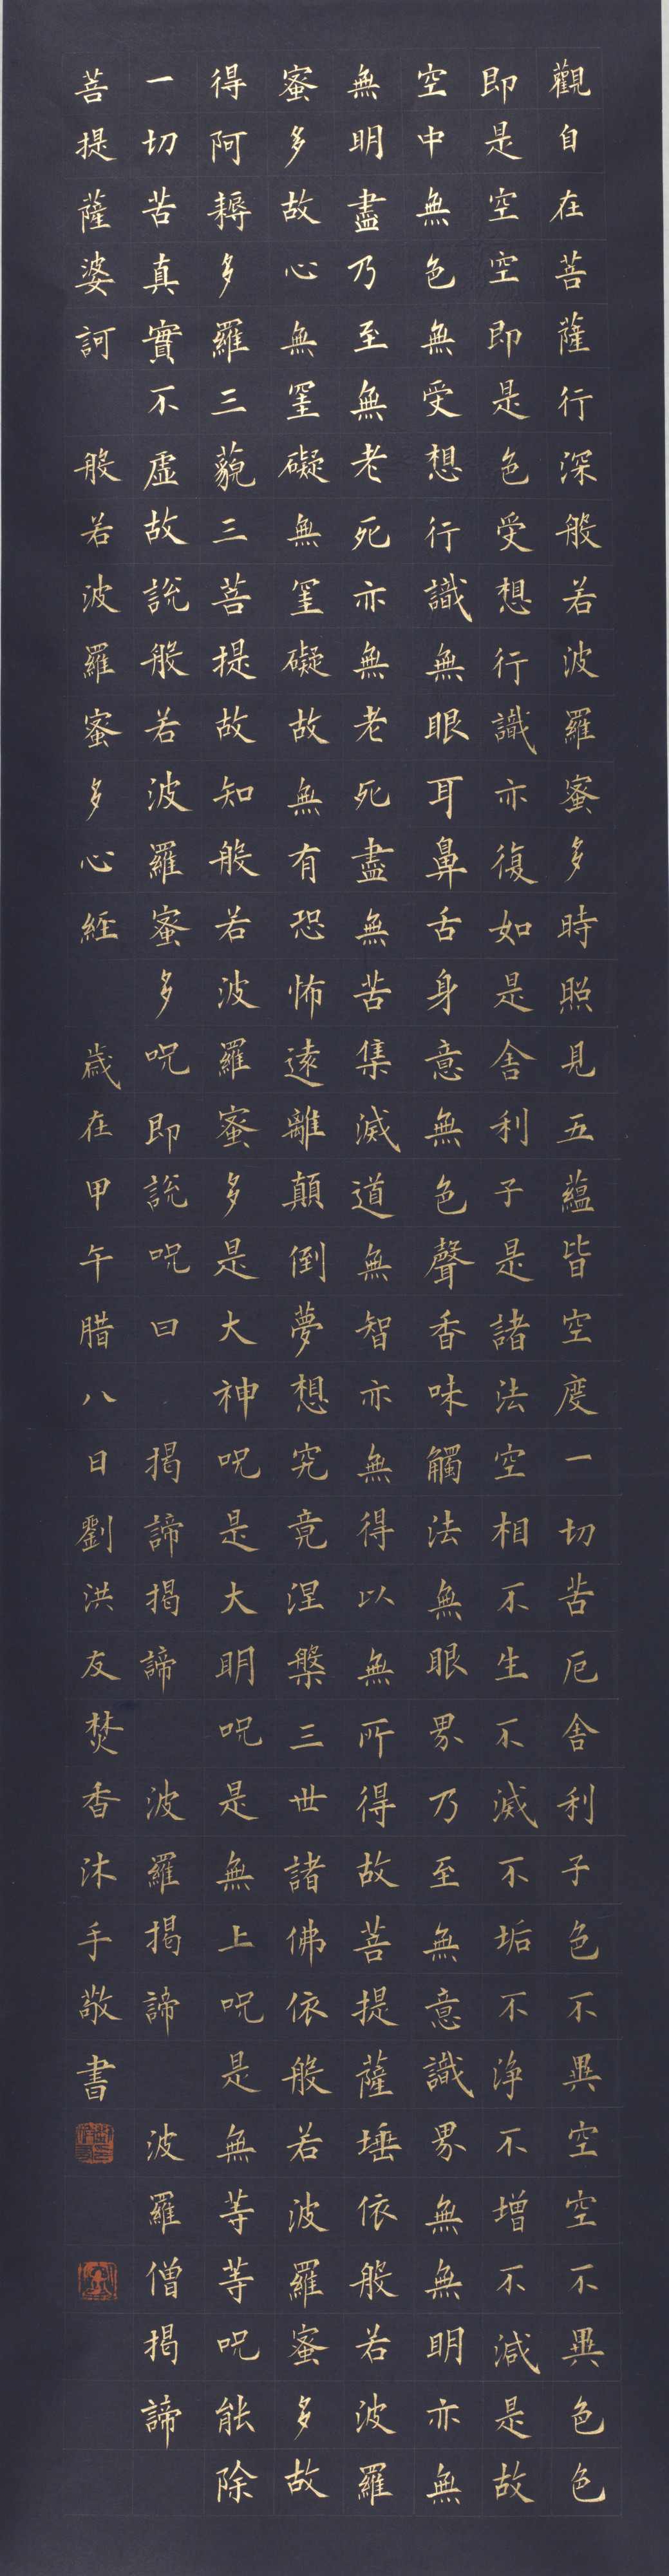 觀自在菩薩行深般若波羅蜜多時照見五蘊皆空度一切苦厄舍利子色不異空空不異色色
即是空空即是色受想行識亦復如是舍利子是諸法空相不生不滅不垢不淨不增不減是故
空中無色無受想行識無眼耳鼻舌身意無色聲香味觸法無眼界乃至無意識界無無明亦無
無明盡乃至無老死亦無老死盡無苦集滅道無智亦無得以無所得故菩提薩埵依般若波羅
蜜多故心無罣礙無罣礙故無有恐怖遠離顛倒夢想究竟涅槃三世諸佛依般若波羅蜜多故
得阿耨多羅三藐三菩提故知般若波羅蜜多是大神呪是大明呪是無上呪是無等等呪能除
一切苦真實不虛故說般若波羅蜜多呪即說呪曰 揭諦揭諦 波羅揭諦 波羅僧揭諦
菩提薩婆訶 般若波羅蜜多心経 歲在甲午腊八日劉洪友焚香沐手敬書